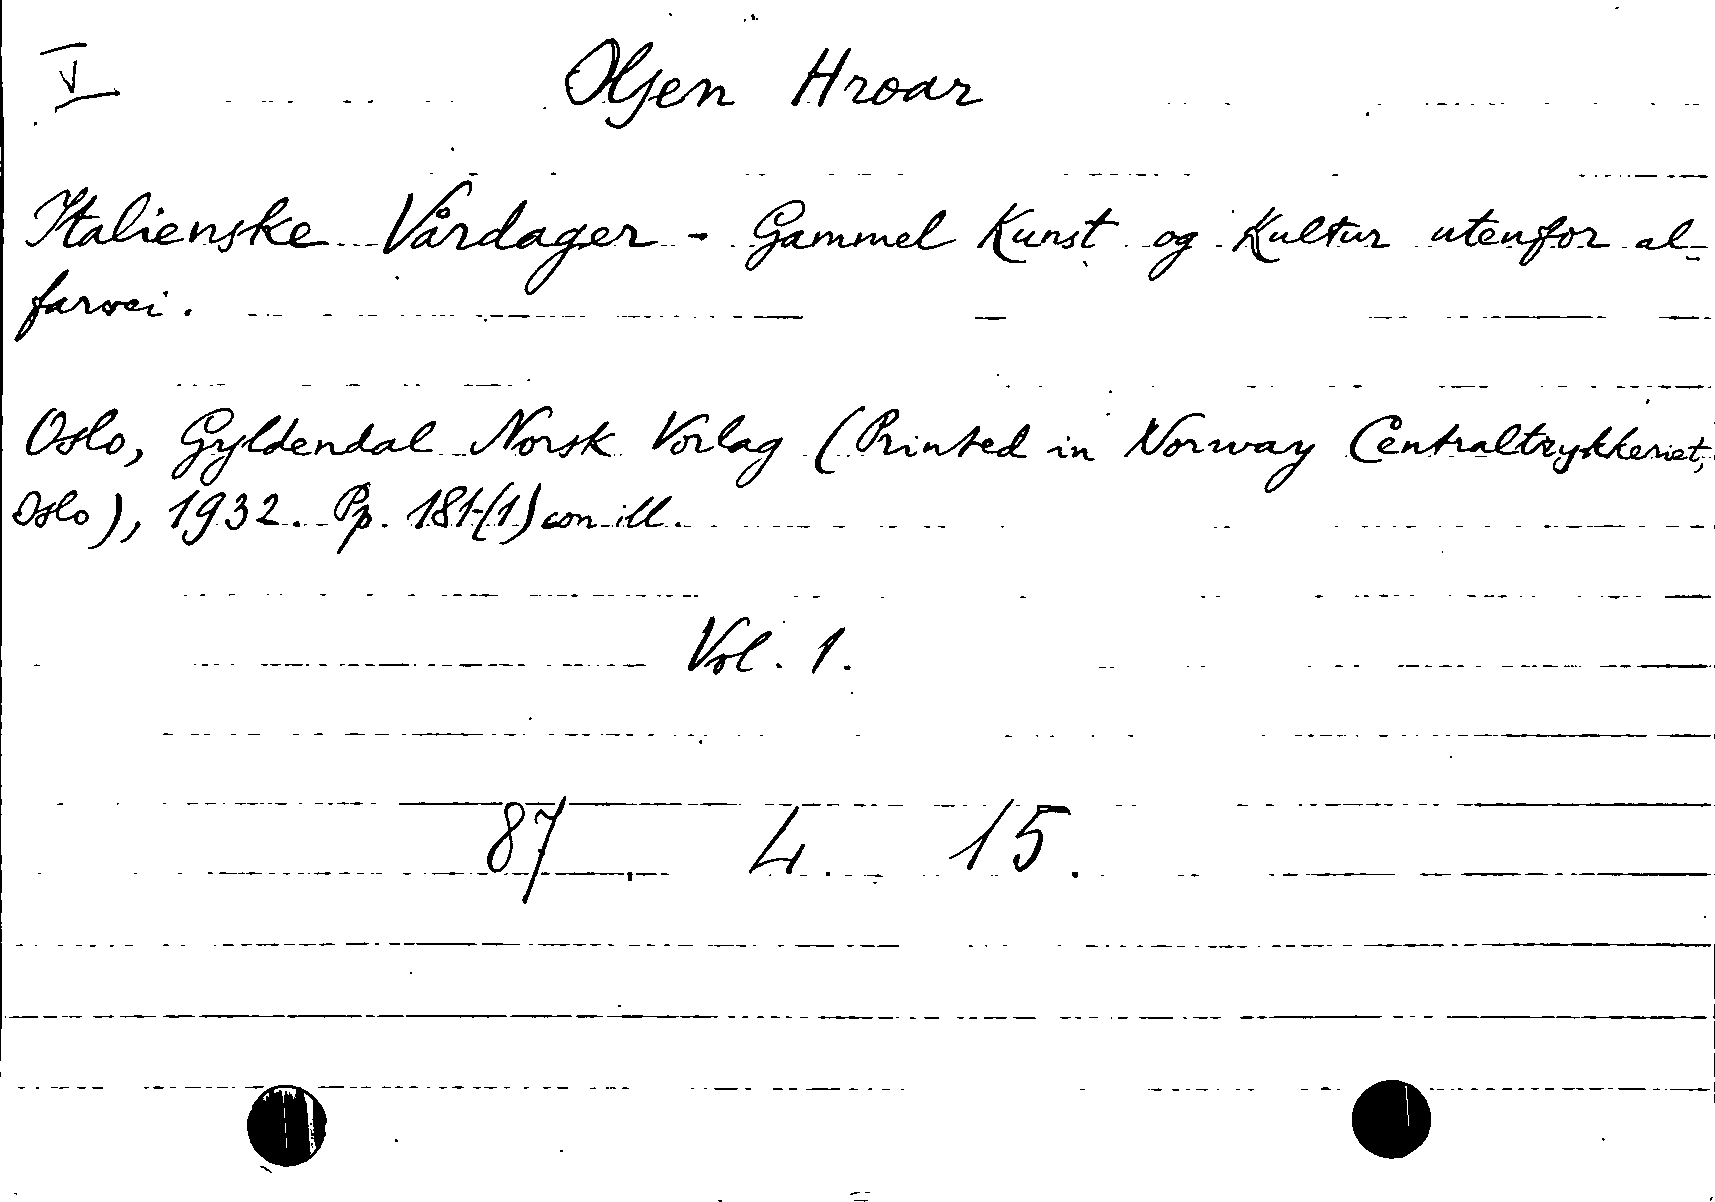 V
Olsen Hroar
Italienske Vårdager - Gammel Kunst og Kultur utenfor al-
farvei.
Oslo, Gyldendal Norsk Vorlag (Printed in Norway Centraltrykkeriet,
Oslo), 1932. Pp. 181-(1) con ill.
Vol. 1.
87 4. 15.